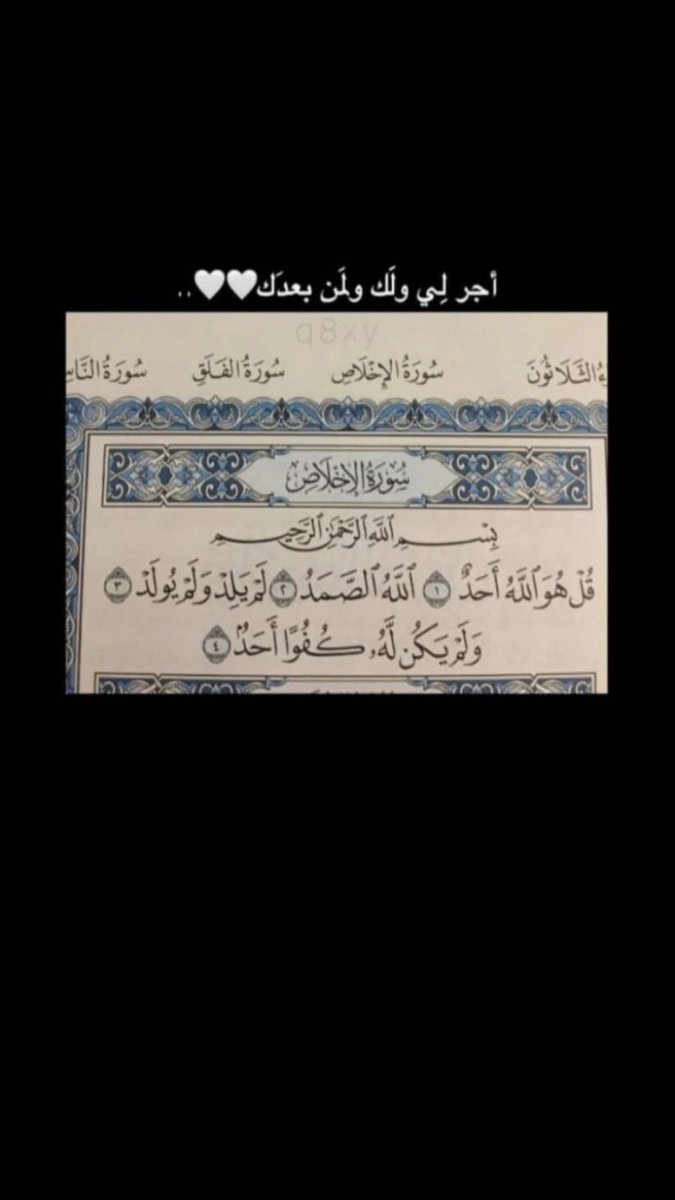 أجر لِي ولَك ولمَن بعدَك🤍🤍..
q8xy
سُورَةُ الإِخْلَاصِ سُورَةُ الفَلَقِ
سُورَةُ الإِخْلَاصِ
بِسْمِ ٱللَّهِ ٱلرَّحْمَٰنِ ٱلرَّحِيمِ
قُلْ هُوَ ٱللَّهُ أَحَدٌ ١ ٱللَّهُ ٱلصَّمَدُ ٢ لَمْ يَلِدْ وَلَمْ يُولَدْ ٣
وَلَمْ يَكُن لَّهُۥ كُفُوًا أَحَدٌۢ ٤